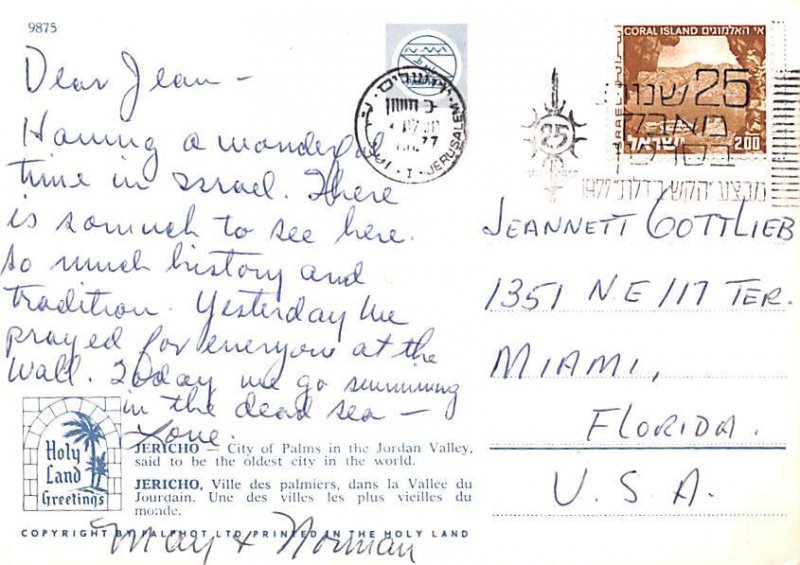 9875
Dear Jean -
Having a wonderful
time in Israel. There
is somuch to see here.
So much history and
tradition. Yesterday we
prayed for everyone at the
Wall. Today we go swimming
in the dead sea -
Love.
May & Norman
Holy
Land
Greetings
JERICHO — City of Palms in the Jordan Valley,
said to be the oldest city in the world.
JERICHO, Ville des palmiers, dans la Vallee du
Jourdain. Une des villes les plus vieilles du
monde.
COPYRIGHT BY PALPHOT LTD PRINTED IN THE HOLY LAND
ירושלים
JERUSALEM
77
25
CORAL ISLAND אי האלמוגים
ISRAEL
ישראל
2.00
25 שנות
מאבק
1977
JEANNETT GOTTLIEB
1351 N.E 117 TER.
MIAMI,
FLORIDA.
U.S.A.